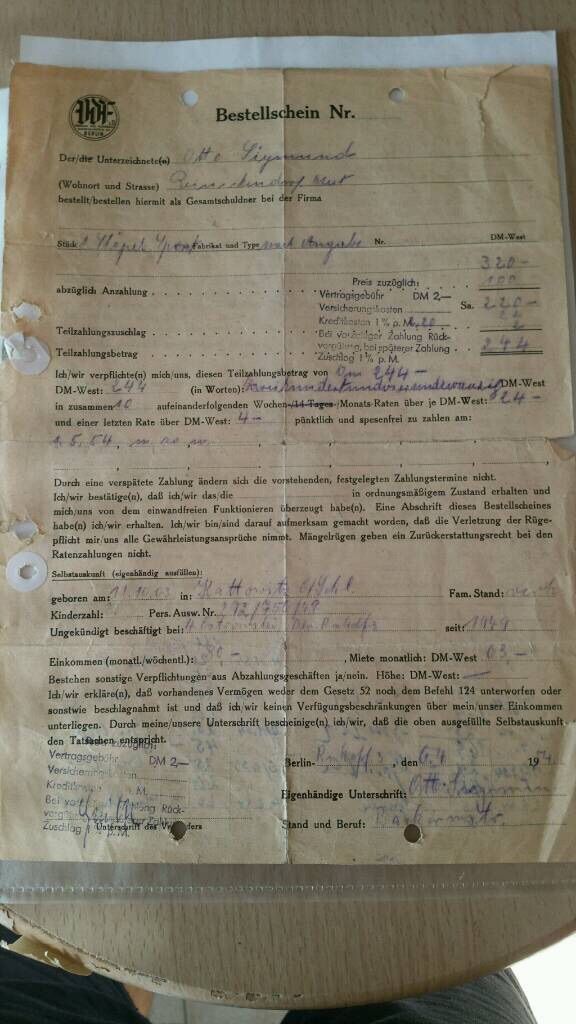 BERLIN
Bestellschein Nr.
Der/die Unterzeichnete(n) Otto Sigmund
(Wohnort und Strasse)
bestellt/bestellen hiermit als Gesamtschuldner bei der Firma
DM-West
Stück Fabrikat und Type nach Angabe Nr.
320.-
Preis zuzüglich: 100
abzüglich Anzahlung
Vertragsgebühr DM 2,—
Versicherungskosten Sa. 220.-
Kreditkosten 1% p. M. 2,20
Teilzahlungszuschlag
Bei vorzeitiger Zahlung Rückvergütung, bei späterer Zahlung
Zuschlag 1% p. M.
Teilzahlungsbetrag 244
Ich/wir verpflichte(n) mich/uns, diesen Teilzahlungsbetrag von Dm 244.-
DM-West: 244 (in Worten): DM-West
in zusammen 10 aufeinanderfolgenden Wochen-/14-Tages-/Monats-Raten über je DM-West: 24.-
und einer letzten Rate über DM-West: 4.- pünktlich und spesenfrei zu zahlen am:
1.5.54,
Durch eine verspätete Zahlung ändern sich die vorstehenden, festgelegten Zahlungstermine nicht.
Ich/wir bestätige(n), daß ich/wir das/die in ordnungsmäßigem Zustand erhalten und
mich/uns von dem einwandfreien Funktionieren überzeugt habe(n). Eine Abschrift dieses Bestellscheines
habe(n) ich/wir erhalten. Ich/wir bin/sind darauf aufmerksam gemacht worden, daß die Verletzung der Rüge-
pflicht mir/uns alle Gewährleistungsansprüche nimmt. Mängelrügen geben ein Zurückerstattungsrecht bei den
Ratenzahlungen nicht.
Selbstauskunft (eigenhändig ausfüllen):
geboren am: in: Kattowitz Fam. Stand: verh.
Kinderzahl: Pers. Ausw. Nr.
Ungekündigt beschäftigt bei: seit: 1949
Einkommen (monatl./wöchentl.): , Miete monatlich: DM-West 63.-
Bestehen sonstige Verpflichtungen aus Abzahlungsgeschäften ja/nein. Höhe: DM-West:
Ich/wir erkläre(n), daß vorhandenes Vermögen weder dem Gesetz 52 noch dem Befehl 124 unterworfen oder
sonstwie beschlagnahmt ist und daß ich/wir keinen Verfügungsbeschränkungen über mein/unser Einkommen
unterliegen. Durch meine/unsere Unterschrift bescheinige(n) ich/wir, daß die oben ausgefüllte Selbstauskunft
den Tatsachen entspricht.
Preis zuzüglich:
Vertragsgebühr DM 2,—
Berlin- , den 1954
Versicherungskosten
Kreditkosten 1% p. M.
Eigenhändige Unterschrift: Otto Sigmund
Bei vorzeitiger Zahlung Rückvergütung, bei späterer Zahlung
Zuschlag 1% p. M.
Unterschrift des Verkäufers
Stand und Beruf: